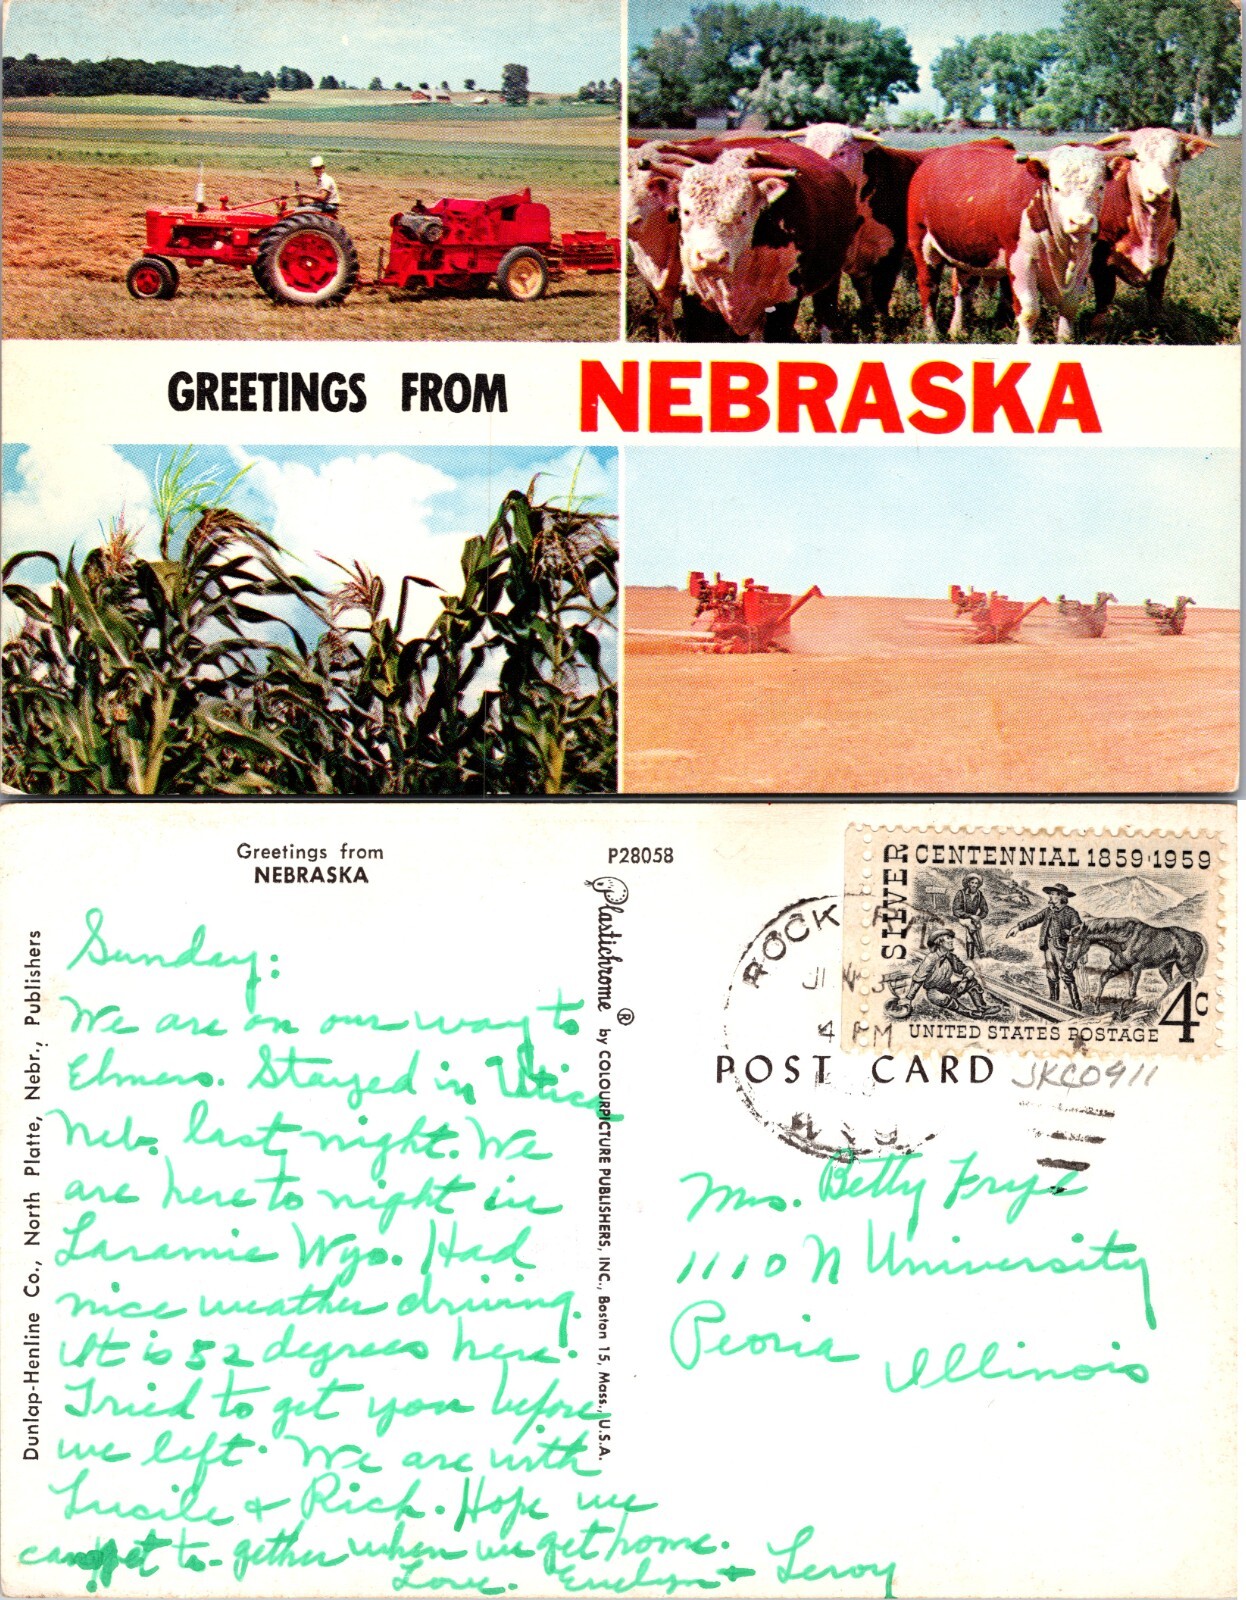 GREETINGS FROM NEBRASKA
Greetings from
NEBRASKA
P28058
Dunlap-Henline Co., North Platte, Nebr., Publishers
Plastichrome ® by COLOURPICTURE PUBLISHERS, INC., Boston 15, Mass., U.S.A.
SILVER
CENTENNIAL 1859·1959
4c
UNITED STATES POSTAGE
ROCK
4 PM
WYO
POST CARD
JKC0911
Sunday:
We are on our way to
Elmers. Stayed in Utica
Neb. last night. We
are here to night in
Laramie Wyo. Had
nice weather driving.
It is 52 degrees here.
Tried to get you before
we left. We are with
Lucile & Rich. Hope we
can get to-gether when we get home.
Love. Evelyn + Leroy
Mrs. Betty Frye
1110 N University
Peoria Illinois